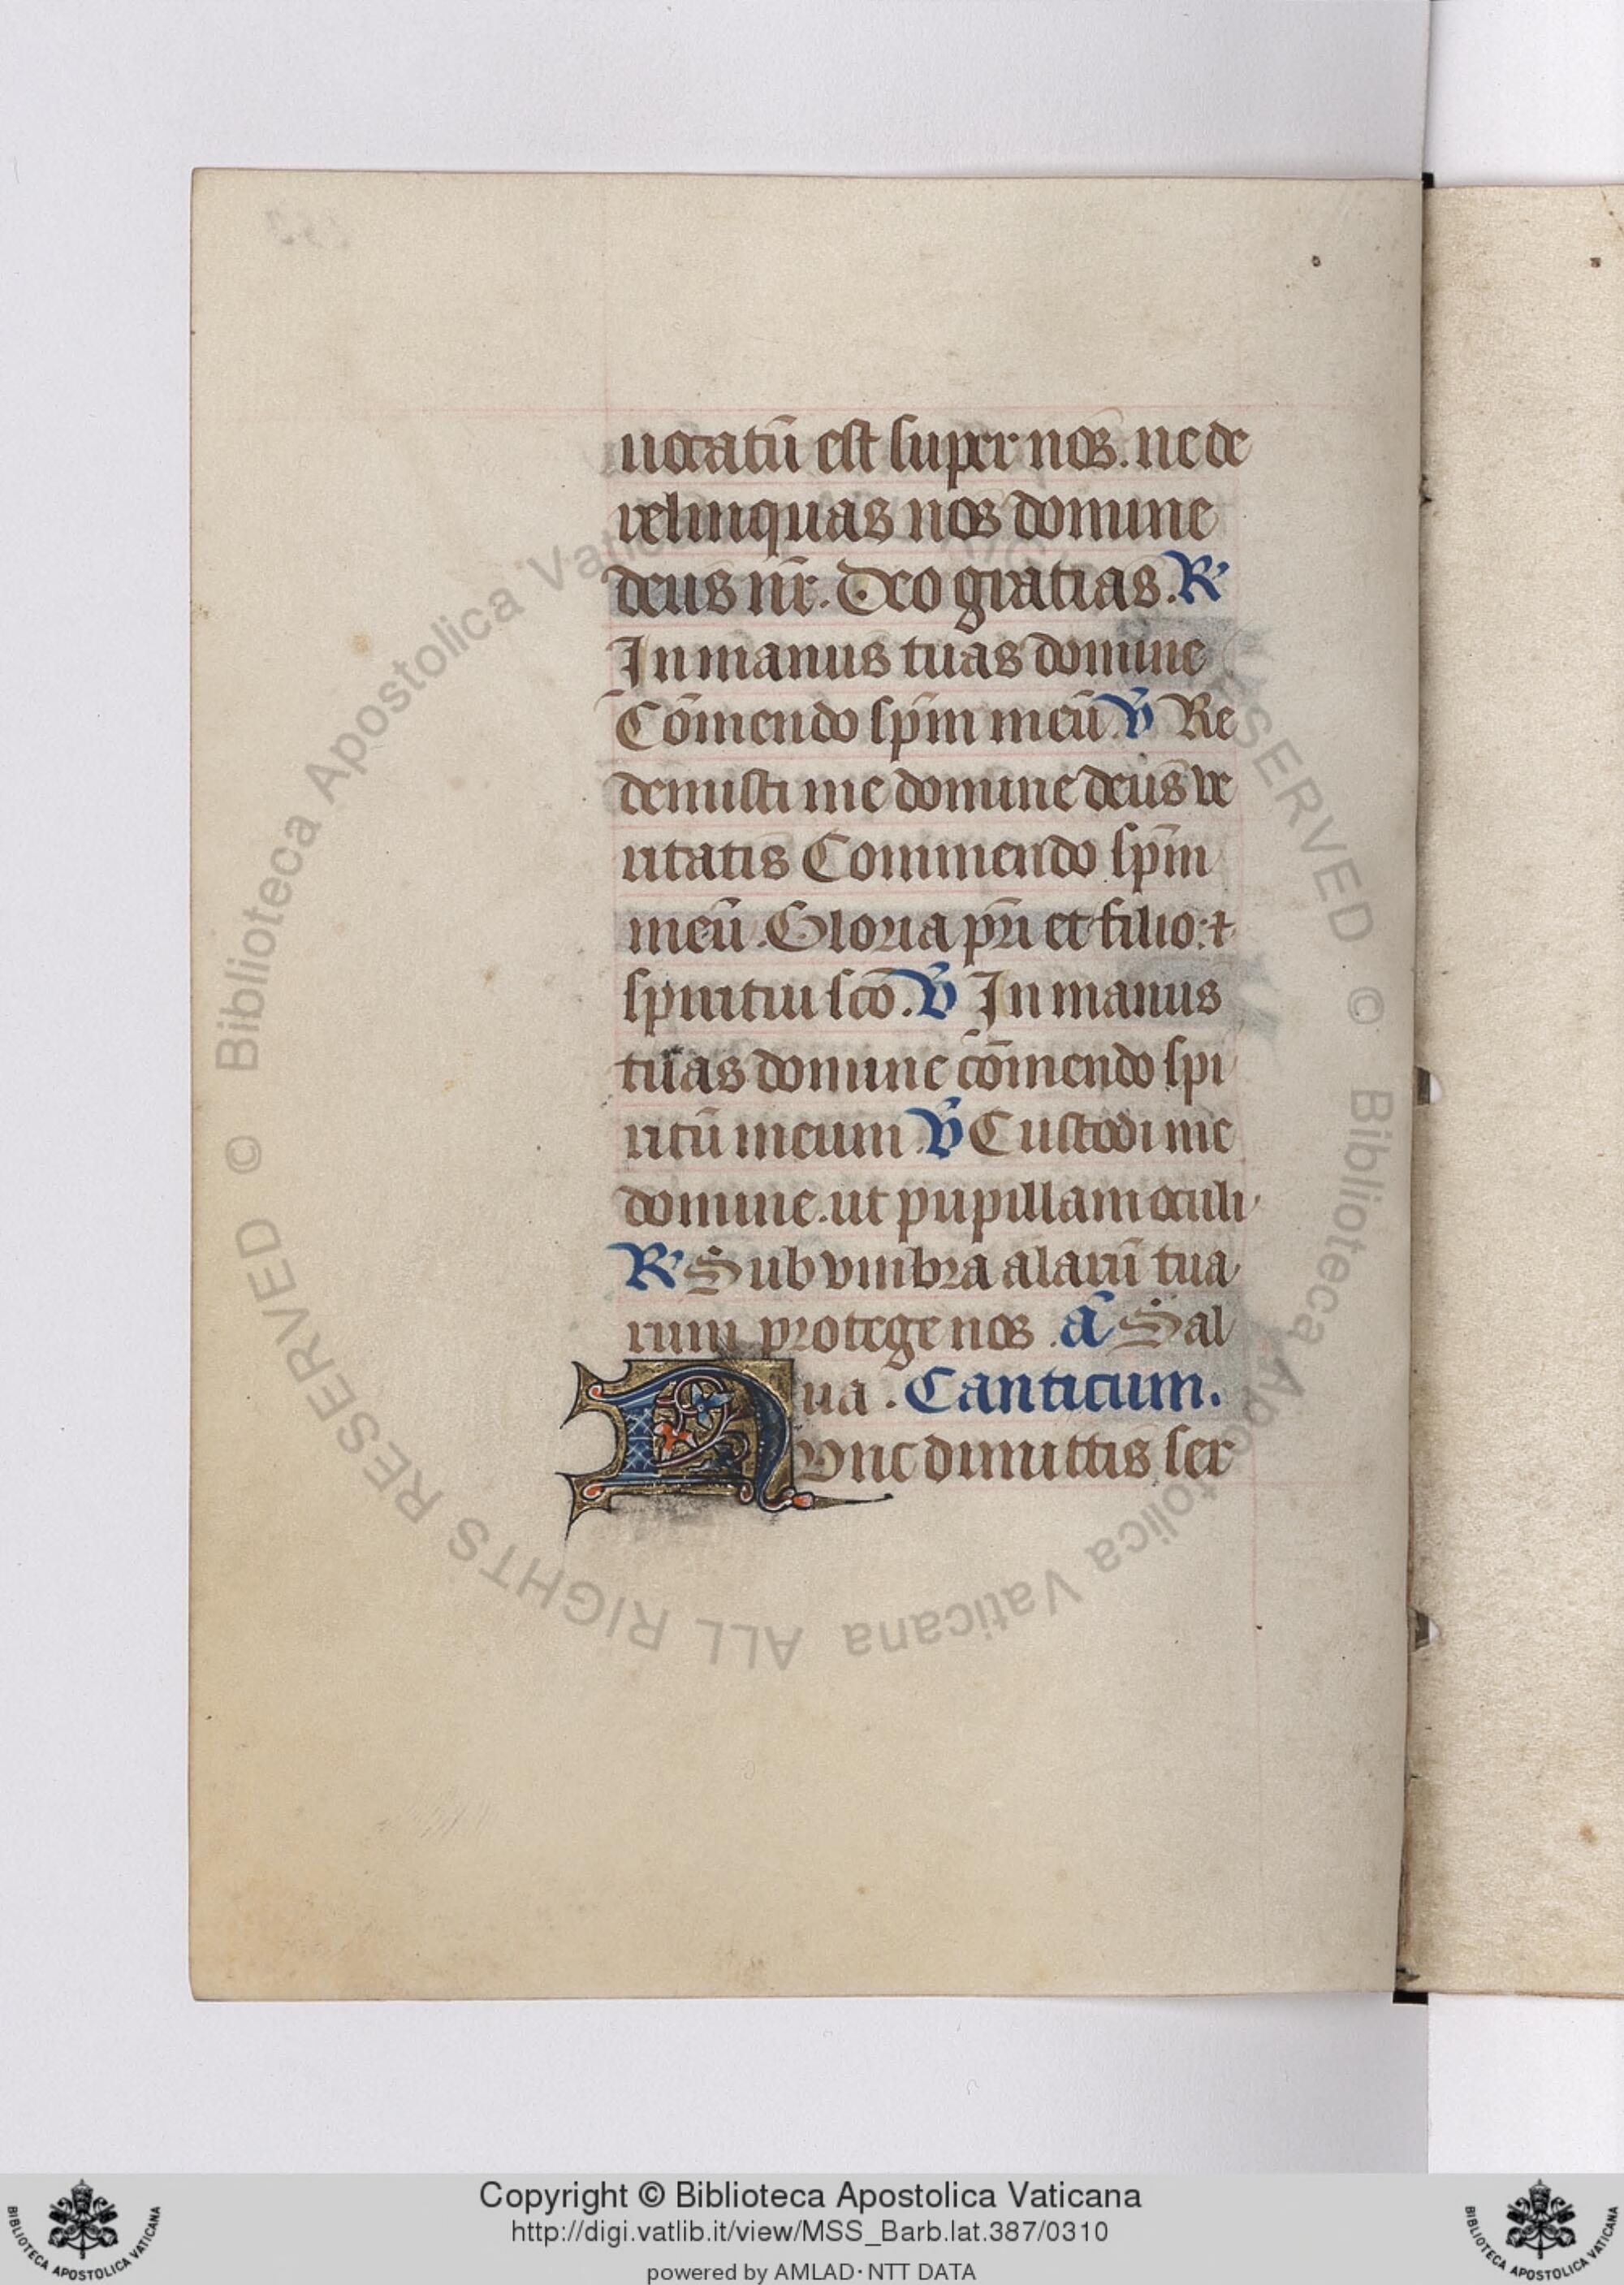 uocatū est super nos. ne de
relinquas nos domine
deus nr̄. Deo gratias. R᷒
In manus tuas domine
Cōmendo spm̄ meū. V̄ Re
demisti me domine deus ve
ritatis Commendo spm̄
meū. Gloria pr̄i et filio: ⁊
spiritiu scō. V̄ In manus
tuas domine cōmendo spi
ritū meum. V̄ Custodi me
domine. ut pupillam oculi
R᷒ Sub vmbra alarū tua
rum protege nos. ā Sal
ua. Canticum.
NVnc dimittis ser
© Biblioteca Apostolica Vaticana ALL RIGHTS RESERVED © Biblioteca Apostolica Vaticana ALL RIGHTS RESERVED
Copyright © Biblioteca Apostolica Vaticana
http://digi.vatlib.it/view/MSS_Barb.lat.387/0310
powered by AMLAD·NTT DATA
BIBLIOTECA APOSTOLICA VATICANA
BIBLIOTECA APOSTOLICA VATICANA